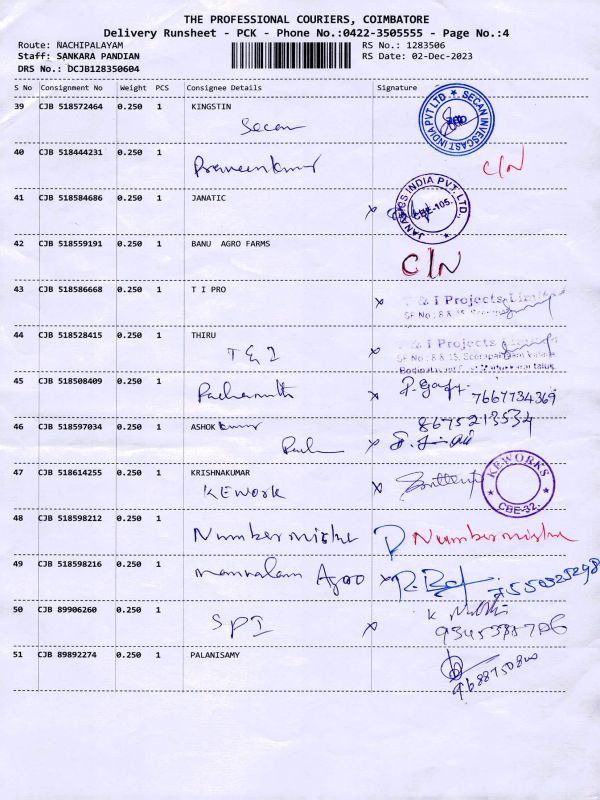 THE PROFESSIONAL COURIERS, COIMBATORE
Delivery Runsheet - PCK - Phone No.:0422-3505555 - Page No.:4
Route: NACHIPALAYAM RS No.: 1283506
Staff: SANKARA PANDIAN RS Date: 02-Dec-2023
DRS No.: DCJB128350604
S No Consignment No Weight PCS Consignee Details Signature
39 CJB 518572464 0.250 1 KINGSTIN
Secan
SECAN INVESCAST INDIA PVT LTD
40 CJB 518444231 0.250 1 Praveenkumar C/N
41 CJB 518584686 0.250 1 JANATIC x
JANATICS INDIA PVT. LTD. CBE-105.
42 CJB 518559191 0.250 1 BANU AGRO FARMS
C/N
43 CJB 518586668 0.250 1 T I PRO x T & I Projects Limited
SF No : 8 & 15,
44 CJB 518528415 0.250 1 THIRU T & I Projects Limited
T & I x SF No : 8 & 15,
45 CJB 518508409 0.250 1
x 7667734369
46 CJB 518597034 0.250 1 ASHOK kumar 8675213534
x
47 CJB 518614255 0.250 1 KRISHNAKUMAR
KEWORK x
KEWORKS CBE-32.
48 CJB 518598212 0.250 1 Numbermishe Numbermishe
49 CJB 518598216 0.250 1 Agro x
50 CJB 89906260 0.250 1
SPI x
51 CJB 89892274 0.250 1 PALANISAMY